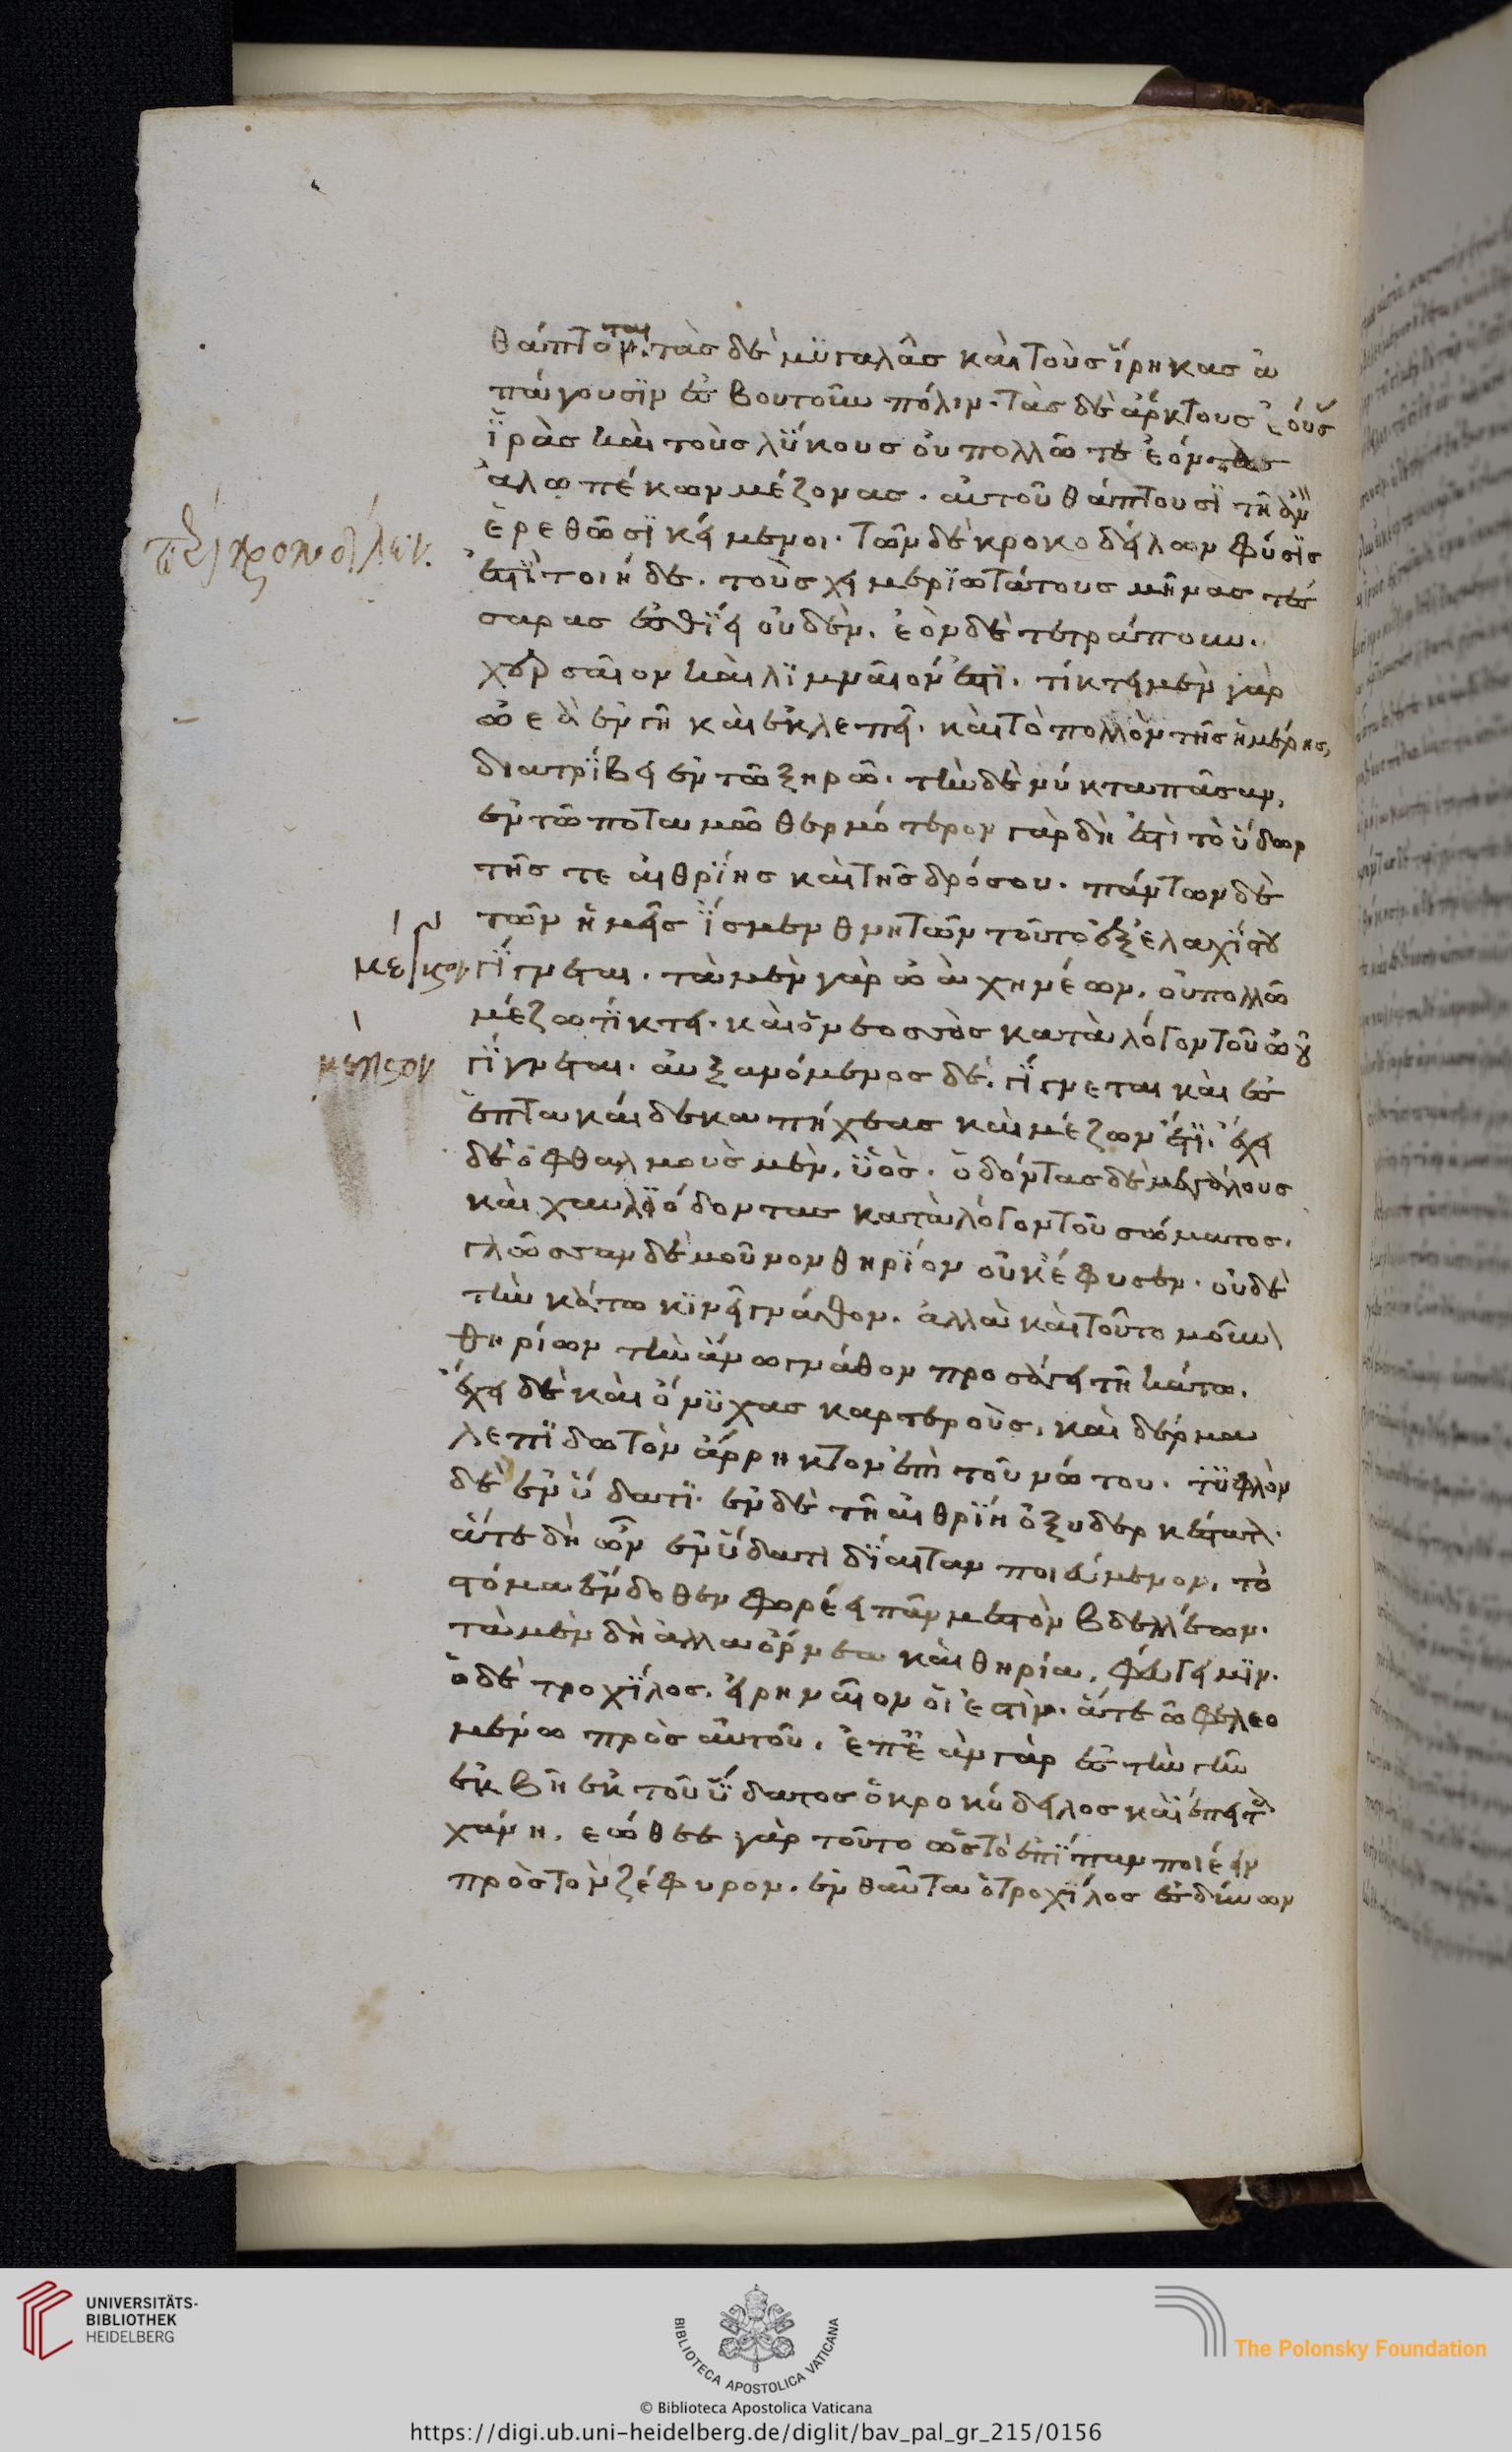 θάπτονται. τὰσ δὲ μϋγαλᾶσ καὶ τοὺσ ἴρηκασ ἀ
πάγουσϊν ἐσ βουτοῦν πόλιν. τὰσ δὲ ἄρκτουσ ἐούσ
ϊρὰσ καὶ τοὺσ λϋκουσ οὐ πολλῶ τε ἐόντασ
ἀλωπέκων μέζονασ. αὐτοῦ θάπτουσϊ τῆ ἂν
ἑρεθῶσϊ κείμενοι. τῶν δὲ κροκοδείλων φύσϊσ
ἐστὶ τοιήδε. τοὺσ χειμερϊωτάτουσ μῆνασ τέσ
σαρασ ἐσθϊει οὐδέν. ἐὸν δὲ τετράπουν.
χερσαῖον καὶ λϊμναῖόν ἐστϊ. τίκτει μὲν γὰρ
ὠεὰ ἐν γῆ καὶ ἐκλεπεῖ. καὶ τὸ πολλὸν τῆσ ἡμέρησ,
διατρϊβει ἐν τῶ ξηρῶ. τὴν δὲ νύκτα πᾶσαν,
ἐν τῶ ποταμῶ θερμότερον γὰρ δή ἐστι τὸ ὕδωρ
τῆσ τε αἰθρϊησ καὶ τῆσ δρόσου. πάντων δὲ
τῶν ἡμεῖσ ἴσμεν θνητῶν τοῦτο ἐξ ἐλαχϊστου
γΐγνεται. τὰ μὲν γὰρ ὠὰ χηνέων. οὐ πολλῶ
μέζω τϊκτει. καὶ ὁ νεοσσὸσ κατὰ λόγον τοῦ ὠοῦ
γϊγνεται. αὐξανόμενοσ δὲ. γΐγνεται καὶ ἐσ
ἑπτακαίδεκα πήχεασ καὶ μέζων ἔτϊ. ἔχει
δὲ ὀφθαλμοὺσ μὲν, ὑὸσ. ὀδόντασ δὲ μεγάλουσ
καὶ χαυλϊόδοντασ κατὰ λόγον τοῦ σώματοσ.
γλῶσσαν δὲ μοῦνον θηρϊον οὐκ ἔφυσεν. οὐδὲ
τὴν κάτω κϊνεῖ γνάθον. ἀλλὰ καὶ τοῦτο μοῦν
θηρίων τὴν ἄνω γνάθον προσάγει τῆ κάτω.
ἔχει δὲ καὶ ὄνϋχασ καρτεροὺσ, καὶ δέρμα
λεπϊδωτὸν ἄρρηκτον ἐπὶ τοῦ νώτου. τϋφλὸν
δὲ ἐν ὕδατϊ. ἐν δὲ τῆ αἰθρϊη ὀξυδερκέστατ.
ἅτε δὴ ὦν ἐν ὕδατι δϊαιταν ποιεύμενον, τὸ
στόμα ἔνδοθεν φορέει πᾶν μεστὸν βδελλέων.
τὰ μὲν δὴ ἄλλα ὄρνεα καὶ θηρία, φεύγει μϊν.
ὁ δὲ τροχϊλοσ. εἰρηναῖον οἵ ἐστϊν. ἅτε ὠφελεο
μένω πρὸσ αὐτοῦ. ἐπεὰν γὰρ ἐσ τὴν γῆν
ἐκβῆ ἐκ τοῦ ὕδατοσ ὁ κροκόδειλοσ καὶ ἔπειτα
χάνη. εώθεε γὰρ τοῦτο ὡσ τὸ ἐπϊπαν ποιέειν
πρὸσ τὸν ζέφυρον. ἐνθαῦτα ὁ τροχϊλοσ ἐσδύνων
περὶ κροκοδείλων.
μεῖζον
μεῖζον
UNIVERSITÄTS-
BIBLIOTHEK
HEIDELBERG
BIBLIOTECA APOSTOLICA VATICANA
The Polonsky Foundation
© Biblioteca Apostolica Vaticana
https://digi.ub.uni-heidelberg.de/diglit/bav_pal_gr_215/0156